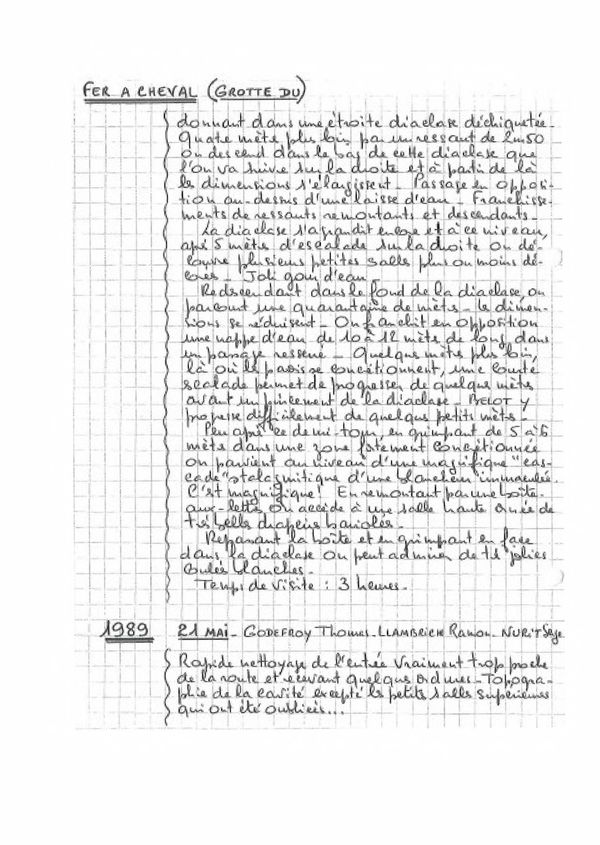 FER A CHEVAL (GROTTE DU)
donnant dans une étroite diaclase déchiquetée.
Quatre mètres plus loin, par un ressaut de 2m50
on descend dans le bas de cette diaclase que
l'on va suivre sur la droite et à partir de là
les dimensions s'élargissent - Passage en opposi-
tion au-dessus d'une laisse d'eau - Franchisse-
ments de ressauts remontants et descendants -
La diaclase s'agrandit encore et à ce niveau,
après 5 mètres d'escalade sur la droite on dé-
couvre plusieurs petites salles plus ou moins dé-
corées - Joli gour d'eau -
Redescendant dans le fond de la diaclase, on
parcourt une quarantaine de mètres - les dimen-
sions se réduisent - On franchit en opposition
une nappe d'eau de 10 à 12 mètres de long dans
un passage resserré - Quelques mètres plus loin,
là où les parois se concrétionnent, une courte
escalade permet de progresser de quelques mètres
avant un pincement de la diaclase - PELOT y
progresse difficilement de quelques petits mètres -
Peu après ce demi-tour, en grimpant de 5 à 6
mètres dans une zone fortement concrétionnée
on parvient au niveau d'une magnifique "cas-
cade" stalagmitique d'une blancheur immaculée.
C'est magnifique! En remontant par une boîte-
aux-lettres on accède à une salle haute ornée de
très belles draperies bariolées -
Repassant la boîte et en grimpant en face
dans la diaclase on peut admirer de très jolies
coulées blanches -
Temps de visite : 3 heures -
1989 21 MAI - GODEFROY Thomas - LLAMBRICH Ramon - NURIT Serge
Rapide nettoyage de l'entrée vraiment trop proche
de la route et recevant quelques ordures - Topogra-
phie de la cavité excepté les petites salles supérieures
qui ont été oubliées...